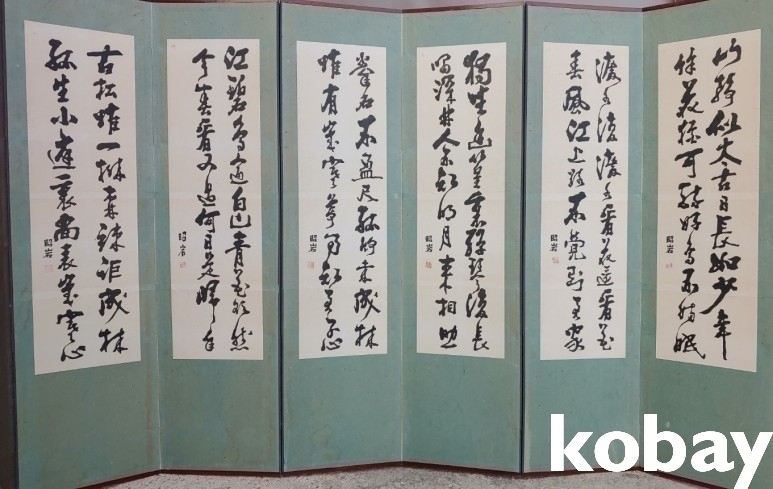 山靜似太古日長如少年
餘花猶可醉好鳥不妨眠
昭岩
渡水復渡水看花還看花
春風江上路不覺到君家
昭岩
獨坐幽篁裏彈琴復長
嘯深林人不知明月來相照
昭岩
拳石不盈尺孤竹未成林
惟有歲寒
昭岩
江碧鳥逾白山青花欲然
今春看又過何日是歸年
昭岩
古松惟一株森疎詎成林
孤生小庭裏尚表歲寒心
昭岩
kobay